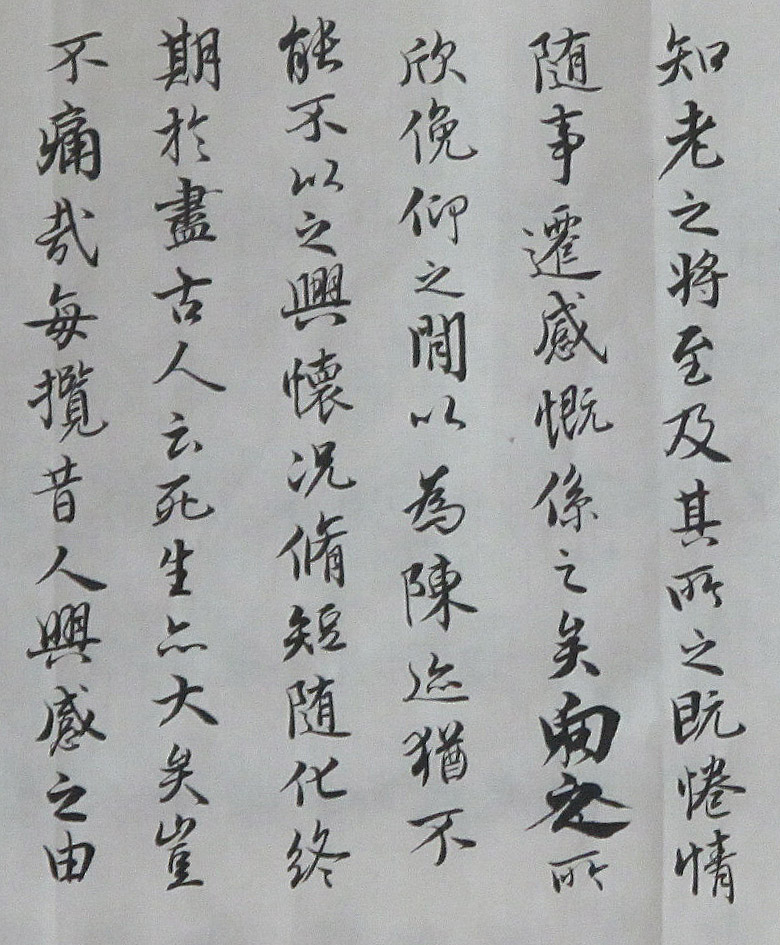 知老之將至及其所之既惓情
随事遷感慨係之矣向之所
欣俛仰之閒以為陳迹猶不
能不以之興懷况脩短随化終
期於盡古人云死生亦大矣豈
不痛哉每攬昔人興感之由